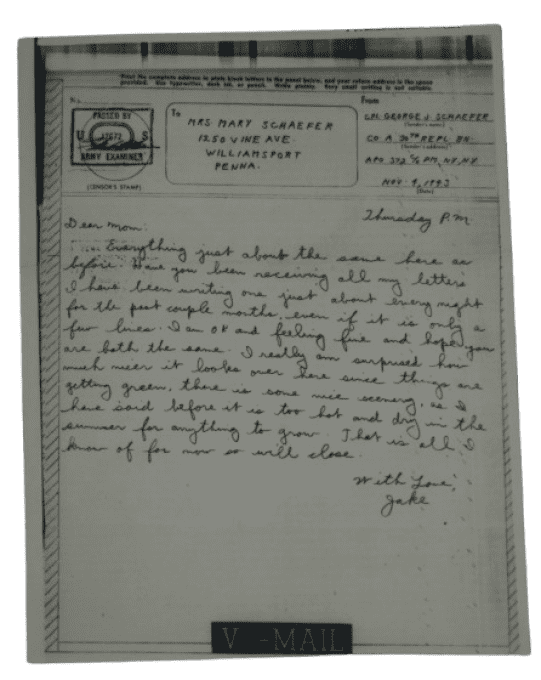 Print the complete address in plain block letters in the panel below, and your return address in the space
provided. Use typewriter, dark ink, or pencil. Write plainly. Very small writing is not suitable.
No.
PASSED BY
U S
ARMY EXAMINER
(CENSOR'S STAMP)
To
MRS MARY SCHAEFER
1250 VINE AVE.
WILLIAMSPORT
PENNA.
From
CPL GEORGE J SCHAEFER
(Sender's name)
CO A 30TH REPL BN.
(Sender's address)
APO 372 C/O PM, NY, NY
NOV. 4, 1943
(Date)
Thursday P.M
Dear Mom:
Everything just about the same here as
before. Have you been receiving all my letters
I have been writing one just about every night
for the past couple months, even if it is only a
few lines. I am OK and feeling fine and hope you
are both the same. I really am surprised how
much nicer it looks over here since things are
getting green, there is some nice scenery, as I
have said before it is too hot and dry in the
summer for anything to grow. That is all I
know of for now so will close.
With Love,
Jake
V -MAIL